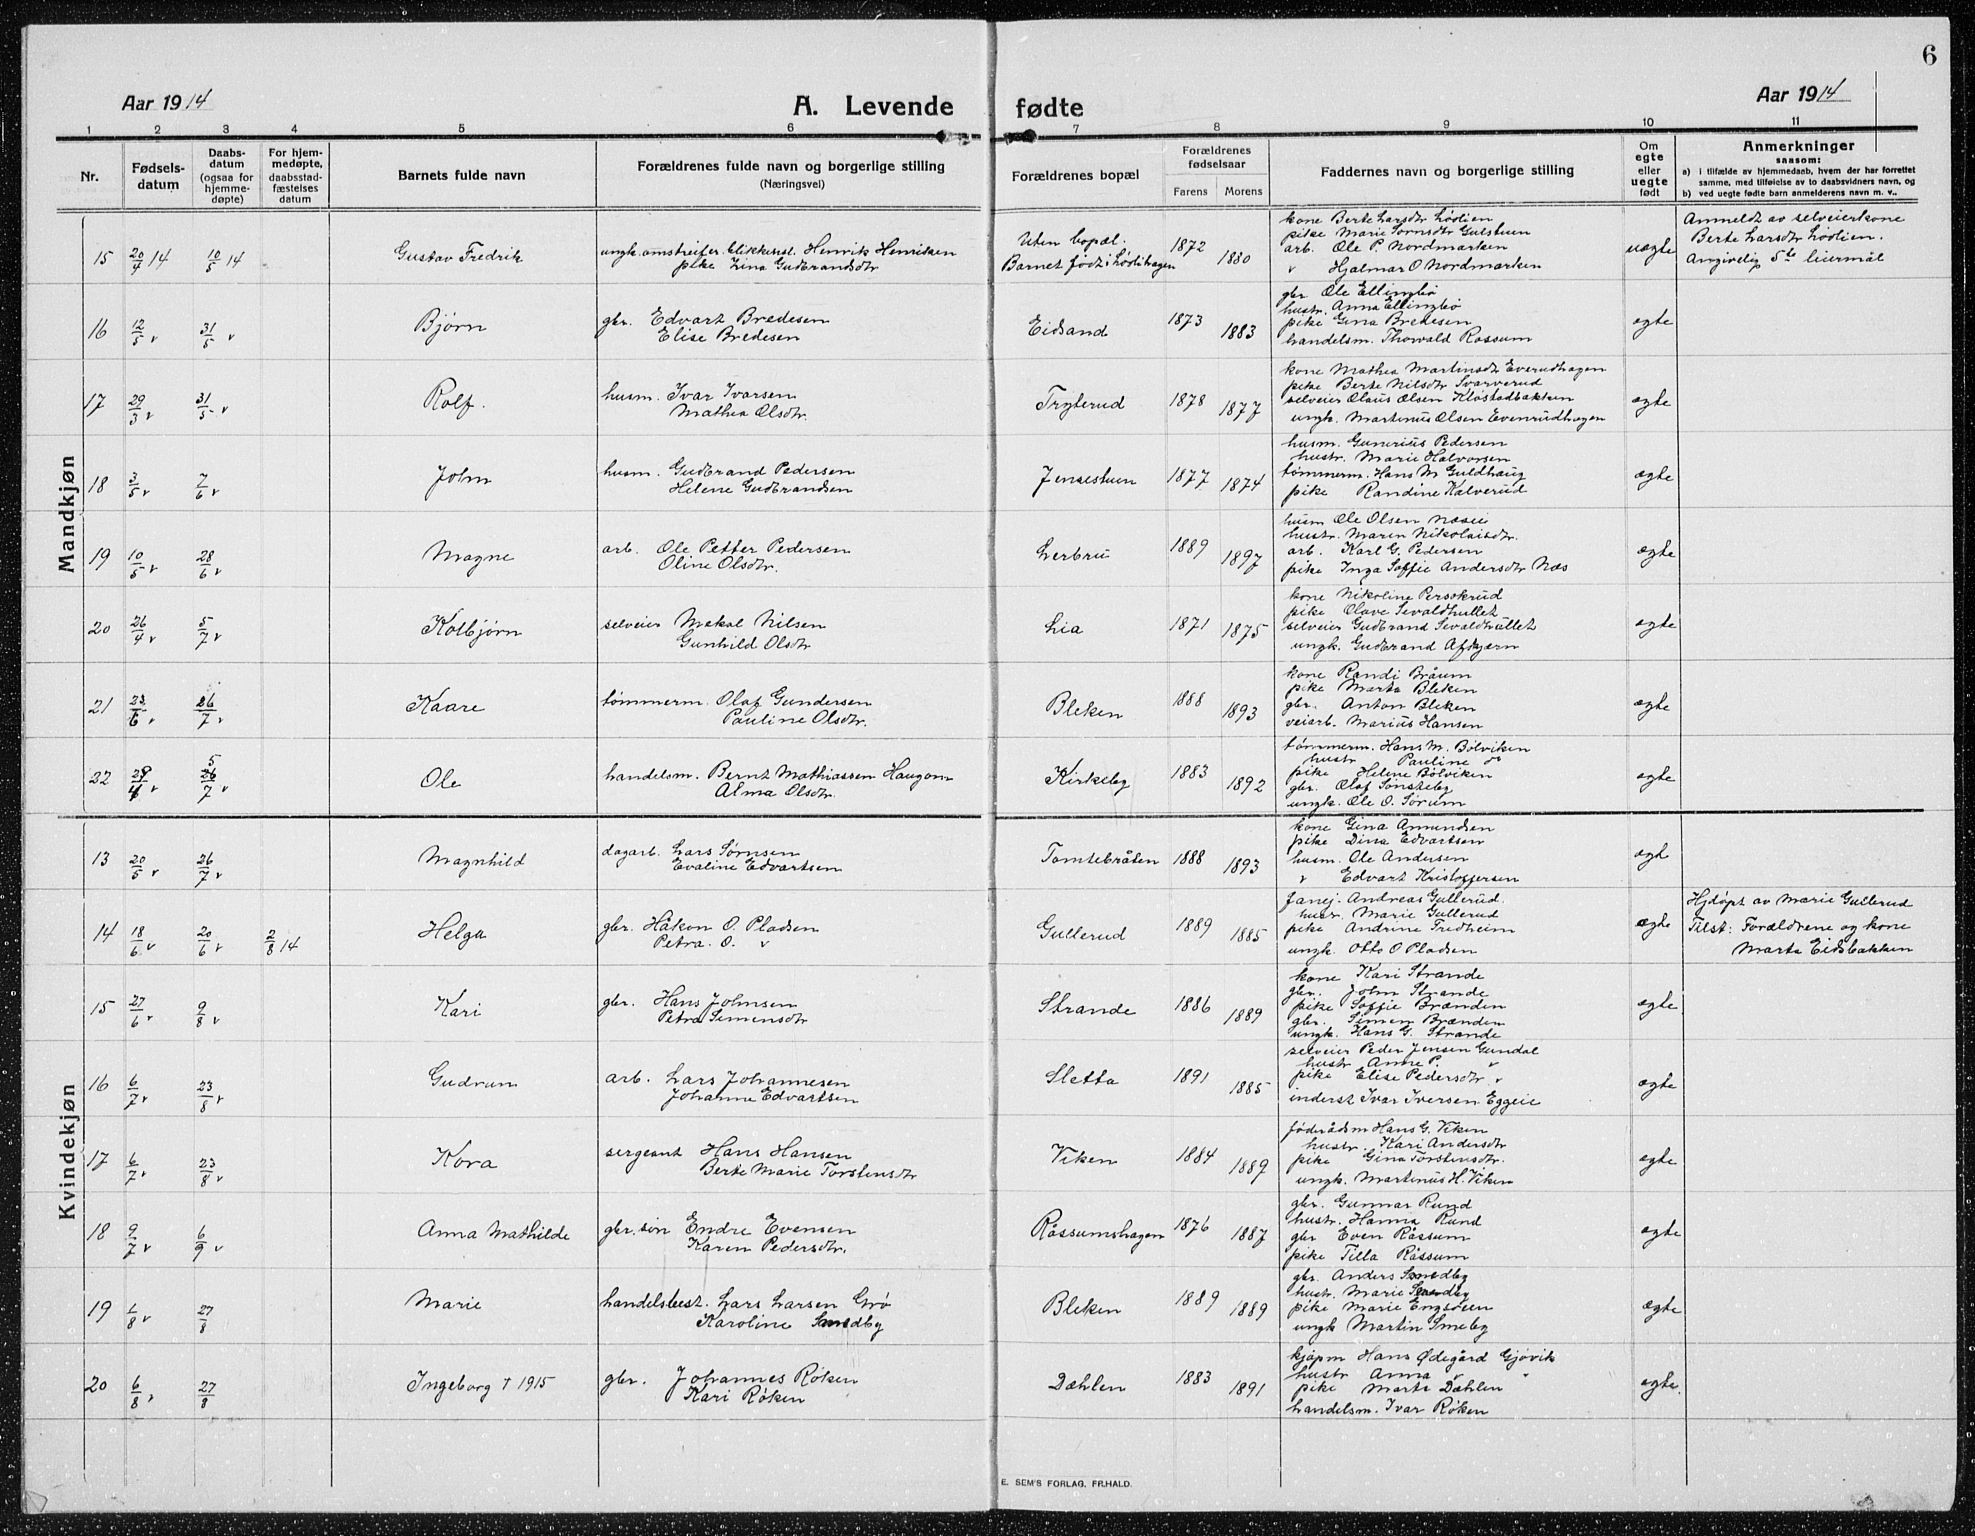 6
Aar 1914
A. Levende fødte
Aar 1914
1 2 3 4 5 6 7 8 9 10 11
Nr.
Fødsels-
datum
Daabs-
datum
(ogsaa for
hjemme-
døpte)
For hjem-
medøpte,
daabsstad-
fæstelses
datum
Barnets fulde navn
Forældrenes fulde navn og borgerlige stilling
(Næringsvei)
Forældrenes bopæl
Forældrenes
fødselsaar
Farens Morens
Faddernes navn og borgerlige stilling
Om
egte
eller
uegte
født
Anmerkninger
saasom:
a) i tilfælde av hjemmedaab, hvem der har forrettet
samme, med tilføielse av to daabsvidners navn, og
b) ved uegte fødte barn anmelderens navn m. v..
Mandkjøn
15 20/4 14 10/5 14 Gustav Fredrik
ungk. omstreifer, blikkensl. Henrik Henriksen
pike Lina Gudbrandsdtr
Uten bopæl.
Barnet født i Lødlihagen
1872 1880
kone Berte Larsdtr Lødlien
pike Marie Sørnsdtr Gulstuen
arb. Ole P. Nordmarken
v Hjalmar O Nordmarken
uegte
Anmeldt av selveierkone
Berte Larsdtr Lødlien.
Angivelig 5te leiermål
16 12/5 v 31/5 v Bjørn
gbr. Edvart Bredesen
Elise Bredesen
Eidsand 1873 1883
gbr Ole Ellingbø
hustr. Anna Ellingbø
pike Gina Bredesen
handelsm. Thorvald Rossum
egte
17 29/3 v 31/5 v Rolf.
husm. Ivar Ivarsen
Mathea Olsdtr.
Tryterud 1878 1877
kone Mathea Martinsdtr Everudhagen
pike Berte Nilsdtr Svarverud
selveier Olaus Olsen Kløstadbakken
ungk. Martinus Olsen Evenrudhagen
egte
18 3/5 v 7/6 v John
husm. Gudbrand Pedersen
Helene Gudbrandsen
Jensestuen 1877 1874
husm. Gunerius Pedersen
hustr. Marie Halvorsen
tømmerm. Hans M Guldhaug
pike Randine Kalverud
egte
19 10/5 v 28/6 v Magne
arb. Ole Petter Pedersen
Oline Olsdtr.
Lerbru 1889 1897
husm Ole Olsen Næsei
hustr. Maren Nikolaisdtr.
arb. Karl G. Pedersen
pike Inga Soffie Andersdtr Næs
egte
20 26/4 v 5/7 v Kolbjørn
selveier Mekal Nilsen
Gunhild Olsdtr
Lia 1871 1875
kone Nikoline Persokrud
pike Olave Sevaldhullet
selveier Gudbrand Sevaldhullet
ungk. Gudbrand Afskjærn
egte
21 23/6 v 26/7 v Kaare
tømmerm. Olaf Gundersen
Pauline Olsdtr.
Bleken 1888 1893
kone Randi Bråum
pike Marta Bleken
gbr. Anton Bleken
veiarb. Marius Hansen
egte
22 5/7 v Ole
handelsm. Bernt Mathiassen Haugom
Alma Olsdtr.
Kirkeby 1883 1892
tømmerm. Hans M. Bølviken
hustr Pauline do
pike Helene Bølviken
gbr. Olaf Sønsteby
ungk. Ole O. Sørum
egte
Kvindekjøn
13 20/5 v 26/7 v Magnhild
dagarb. Lars Sørnsen
Evaline Edvartsen
Tomtebråten 1888 1893
kone Gina Amundsen
pike Dina Edvartsen
husm. Ole Andersen
v Edvart Kristoffersen
egt
14 18/6 v 20/6 v 2/8 14 Helga
gbr. Håkon O. Pladsen
Petra. O. v
Gullerud 1889 1885
fanej. Andreas Gullerud.
hustr. Marie Gullerud
pike Andrine Fredheim
ungk. Otto O Pladsen
egte
Hjdøpt av Marie Gullerud
Tilst: Forældrene og kone
Marta Eidsbakken
15 27/6 v 9/8 v Kari
gbr. Hans Johnsen
Petra Simensdtr
Strande 1886 1889
kone Kari Strande
gbr. John Strande
pike Soffie Brænden
gbr. Simen Brænden
ungk. Hans G. Strande
egte
16 6/7 v 23/8 v Gudrun
arb. Lars Johannesen
Johanne Edvartsen
Sletta 1891 1885
selveier Peder Jensen Gundal
hustr Anne P. v
pike Elise Pedersdtr v
inderst Ivar Iversen Eggeie
egte
17 6/7 v 23/8 v Kora
sergeant Hans Hansen
Berte Marie Torstensdtr
Viken 1884 1889
føderådsm Hans G. Viken
hustr. Kari Andersdtr
pike Gina Torstensdtr.
ungk. Martinus H. Viken
egte
18 9/7 v 6/9 v Anna Mathilde
gbr. søn Endre Evensen
Karen Pedersdtr.
Råssumshagen 1876 1887
gbr. Gunnar Rund
hustr. Hanna Rund
gbr Even Råssum
pike Tilla Råssum
egte
19 1/8 v 27/8 Marie
handelsbest. Lars Larsen Grø
Karoline Smedby
Bleken 1889 1889
gbr. Anders Smedby
hustr. Marie Smedby
pike Marie Engsveen
ungk Martin Smeby
egte
20 6/8 v 27/8 Ingeborg † 1915
gbr. Johannes Røken
Kari Røken
Dæhlen 1883 1891
kjøpm Hans Ødegård Gjøvik
hustr Anna v
pike Marta Dæhlen
handelsm. Ivar Røken
egte.
E. SEM'S FORLAG, FR.HALD.